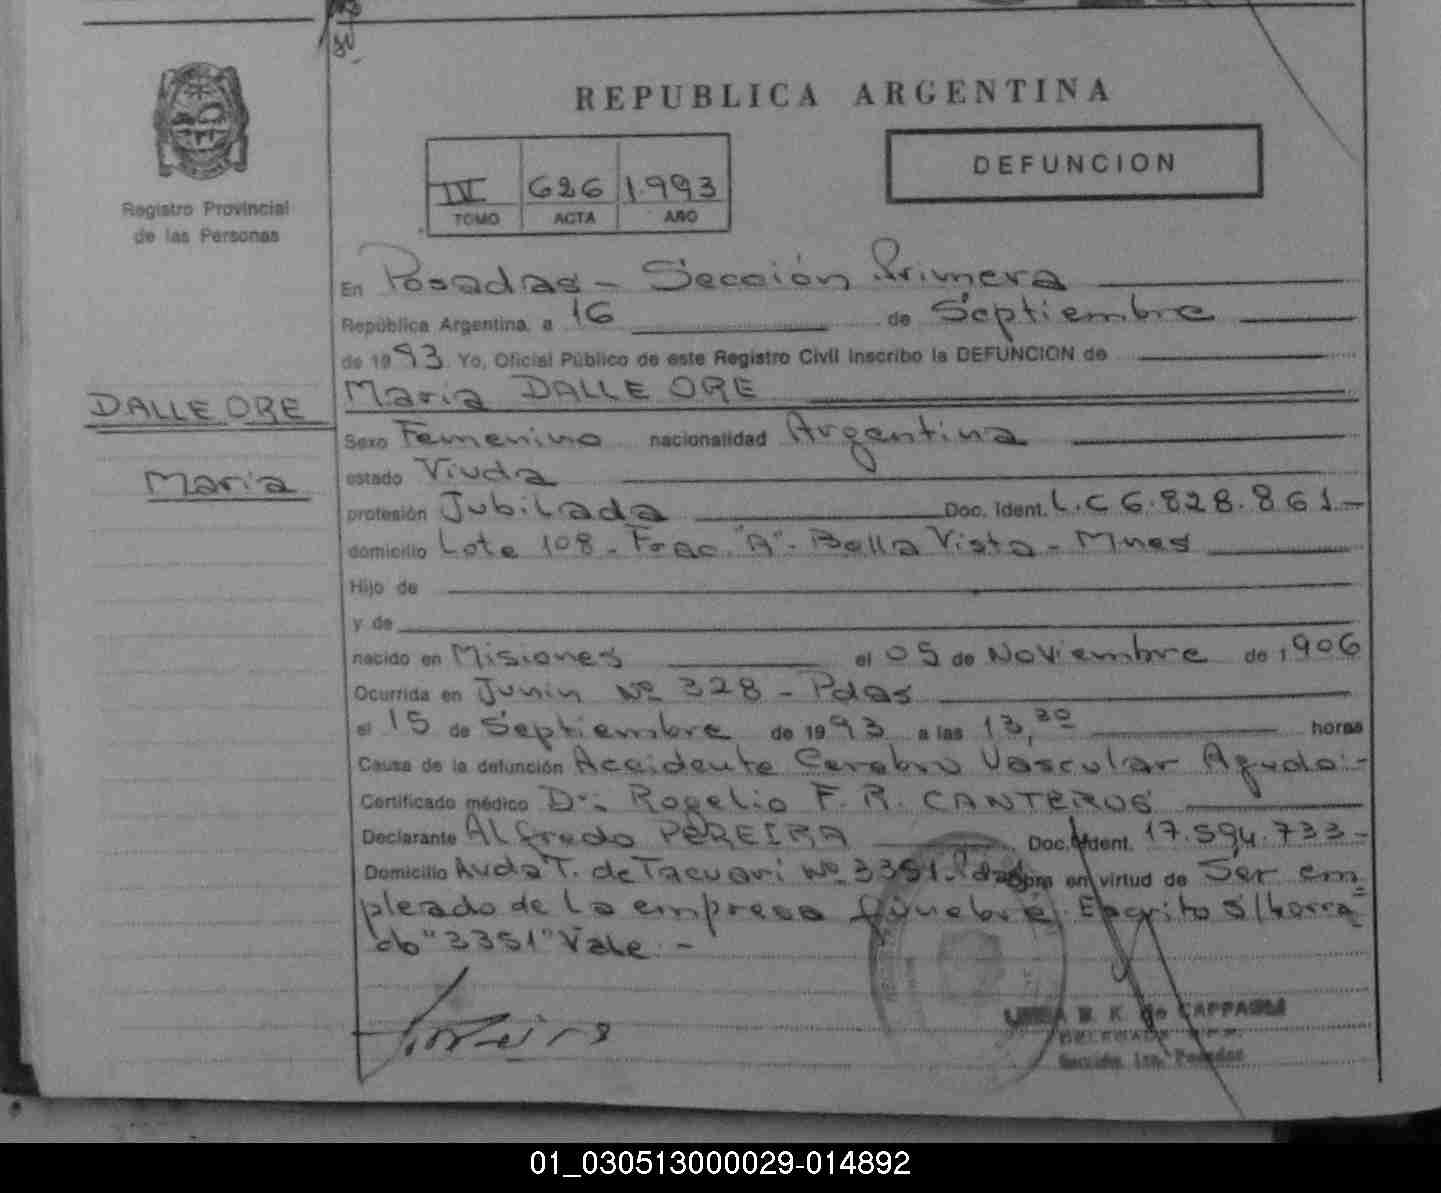 REPUBLICA ARGENTINA
DEFUNCION
IV 626 1.993
TOMO ACTA AÑO
Registro Provincial
de las Personas
En Posadas - Sección Primera
República Argentina, a 16 de Septiembre
de 1993 Yo, Oficial Público de este Registro Civil inscribo la DEFUNCION de
DALLE ORE
María
María DALLE ORE
Sexo Femenino nacionalidad Argentina
estado Viuda
profesión Jubilada Doc. Ident. L.C 6.828.861-
domicilio Lote 108 - Frac. "A" - Bella Vista - Mnes
Hijo de
y de
nacido en Misiones el 05 de Noviembre de 1906
Ocurrida en Junin Nº 328 - Pdas
el 15 de Septiembre de 1993 a las 13,30 horas
Causa de la defunción Accidente Cerebro Vascular Agudo.-
Certificado médico Dr. Rogelio F. R. CANTEROS
Declarante Alfredo PEREIRA Doc. Ident. 17.594.733-
Domicilio Avda T. de Tacuarí Nº 3351 - Pdas en virtud de Ser em=
pleado de la empresa fúnebre. Escrito s/borra-
do "3351" Vale.-
B. K. de CAPPASM
DELEGADA
Sección 1ra. Posadas
01_030513000029-014892